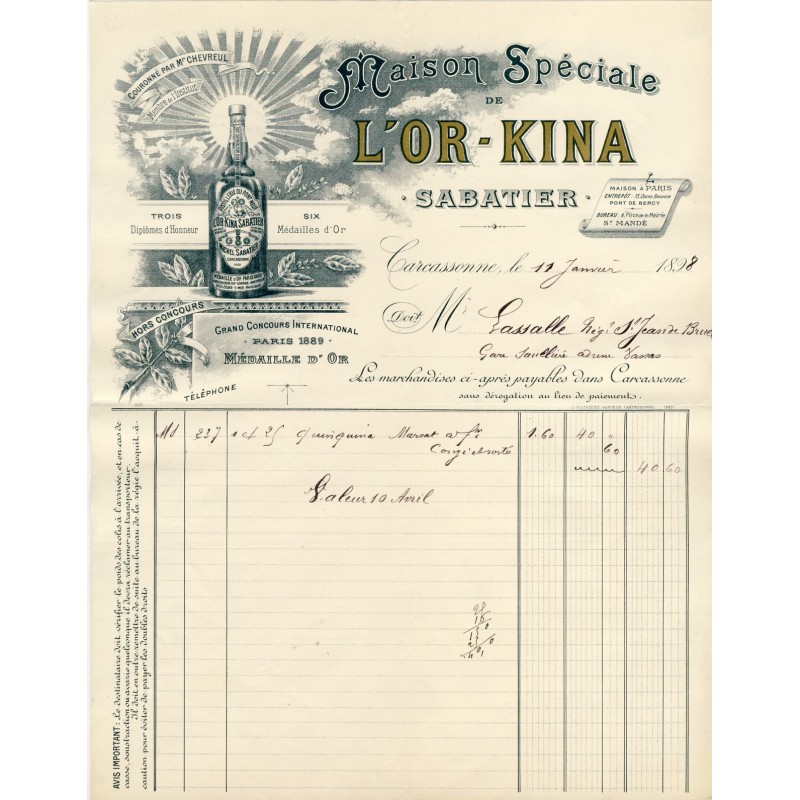 COURONNÉ PAR Mr CHEVREUL
Membre de l'Institut
Maison Spéciale
DE
L'OR-KINA
SABATIER
MAISON À PARIS
PORT DE BERCY
BUREAU: 6, Place de la Mairie
St MANDÉ
TROIS
Diplômes d'Honneur
SIX
Médailles d'Or
L'OR-KINA SABATIER
MICHEL SABATIER
CARCASSONNE
HORS CONCOURS
GRAND CONCOURS INTERNATIONAL
PARIS 1889
MÉDAILLE D'OR
TÉLÉPHONE
Carcassonne, le 11 Janvier 1898
Doit Mr Lassalle Nég. St Jean de Bruel
Gare
Les marchandises ci-après payables dans Carcassonne
sans dérogation au lieu de paiements.
MS 237 1 ct 25 quinquina Marsat 1.60 40 "
60
40 60
Valeur 10 Avril
AVIS IMPORTANT: Le destinataire doit vérifier le poids des colis à l'arrivée, et en cas de
casse, soustraction ou avarie quelconque il devra réclamer au transporteur.
Il doit en outre remettre de suite au bureau de la régie l'acquit-à-
caution pour éviter de payer les doubles droits